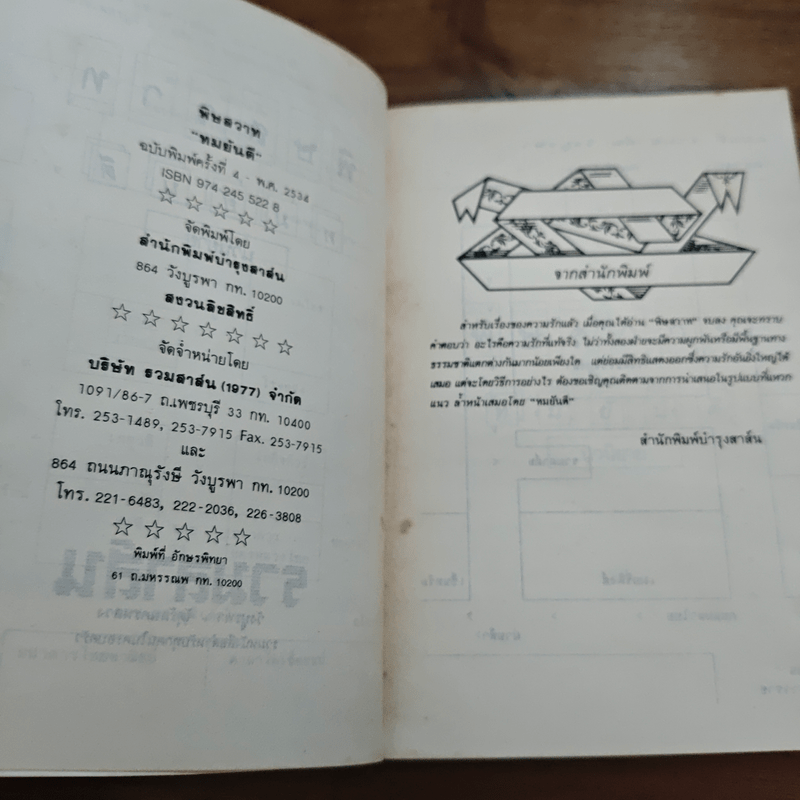 พิษสวาท
"ทมยันตี"
ฉบับพิมพ์ครั้งที่ 4 - พ.ศ. 2534
ISBN 974 245 522 8
จัดพิมพ์โดย
สำนักพิมพ์บำรุงสาส์น
864 วังบูรพา กท. 10200
สงวนลิขสิทธิ์
จัดจำหน่ายโดย
บริษัท รวมสาส์น (1977) จำกัด
1091/86-7 ถ.เพชรบุรี 33 กท. 10400
โทร. 253-1489, 253-7915 Fax. 253-7915
และ
864 ถนนภาณุรังษี วังบูรพา กท. 10200
โทร. 221-6483, 222-2036, 226-3808
พิมพ์ที่ อักษรพิทยา
61 ถ.มหรรณพ กท. 10200
จากสำนักพิมพ์
สำหรับเรื่องของความรักแล้ว เมื่อคุณได้อ่าน "พิษสวาท" จบลง คุณจะทราบ
คำตอบว่า อะไรคือความรักที่แท้จริง ไม่ว่าทั้งสองฝ่ายจะมีความผูกพันหรือมีพื้นฐานทาง
ธรรมชาติแตกต่างกันมากน้อยเพียงใด แต่ย่อมมีสิทธิแสดงออกซึ่งความรักอันยิ่งใหญ่ได้
เสมอ แต่จะโดยวิธีการอย่างไร ต้องขอเชิญคุณติดตามจากการนำเสนอในรูปแบบที่แหวก
แนว ล้ำหน้าเสมอโดย "ทมยันตี"
สำนักพิมพ์บำรุงสาส์น